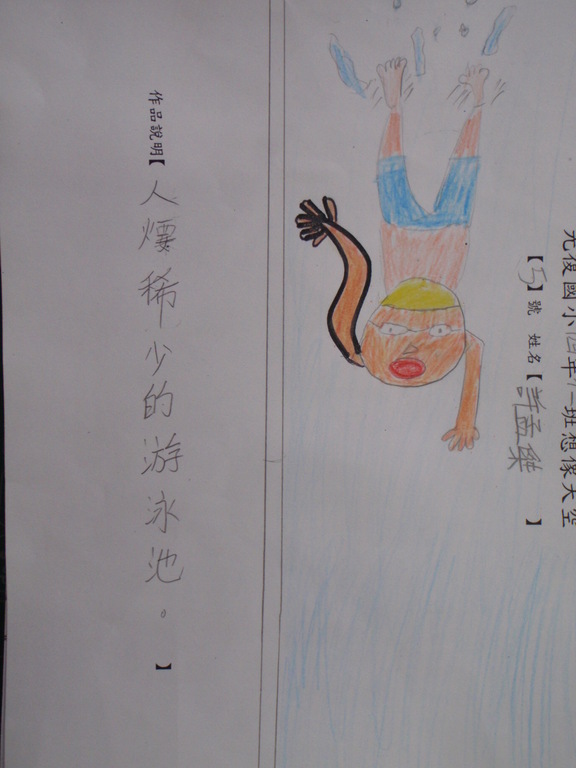 光復國小四年班想像天空
【5】號 姓名【許孟樂】
作品說明【人煙稀少的游泳池。】